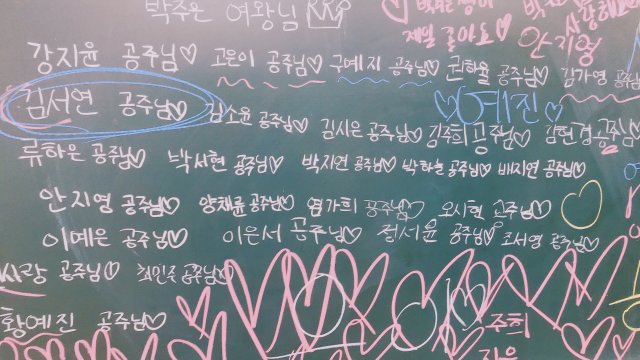 박주은 여왕님
제일 좋아
안지영
강지윤 공주님♡ 고은이 공주님♡ 구예지 공주님♡ 권하율 공주님♡ 김가영 공주님
김서연 공주님♡ 김소윤 공주님♡ 김시은 공주님♡ 김주희 공주님♡ 김현정 공주님♡
♡예진♡
류하은 공주님♡ 박서현 공주님♡ 박지연 공주님♡ 박하늘 공주님♡ 배지연 공주님♡
안지영 공주님♡ 양채륜 공주님♡ 염가희 공주님♡ 오시현 공주님♡
이예은 공주님♡ 이은서 공주님♡ 정서윤 공주님♡ 조서영 공주님♡
사랑 공주님♡ 최민주 공주님♡
황예진 공주님♡
주희